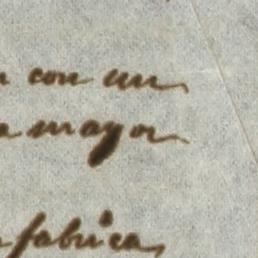 con un
mayor
fabrica